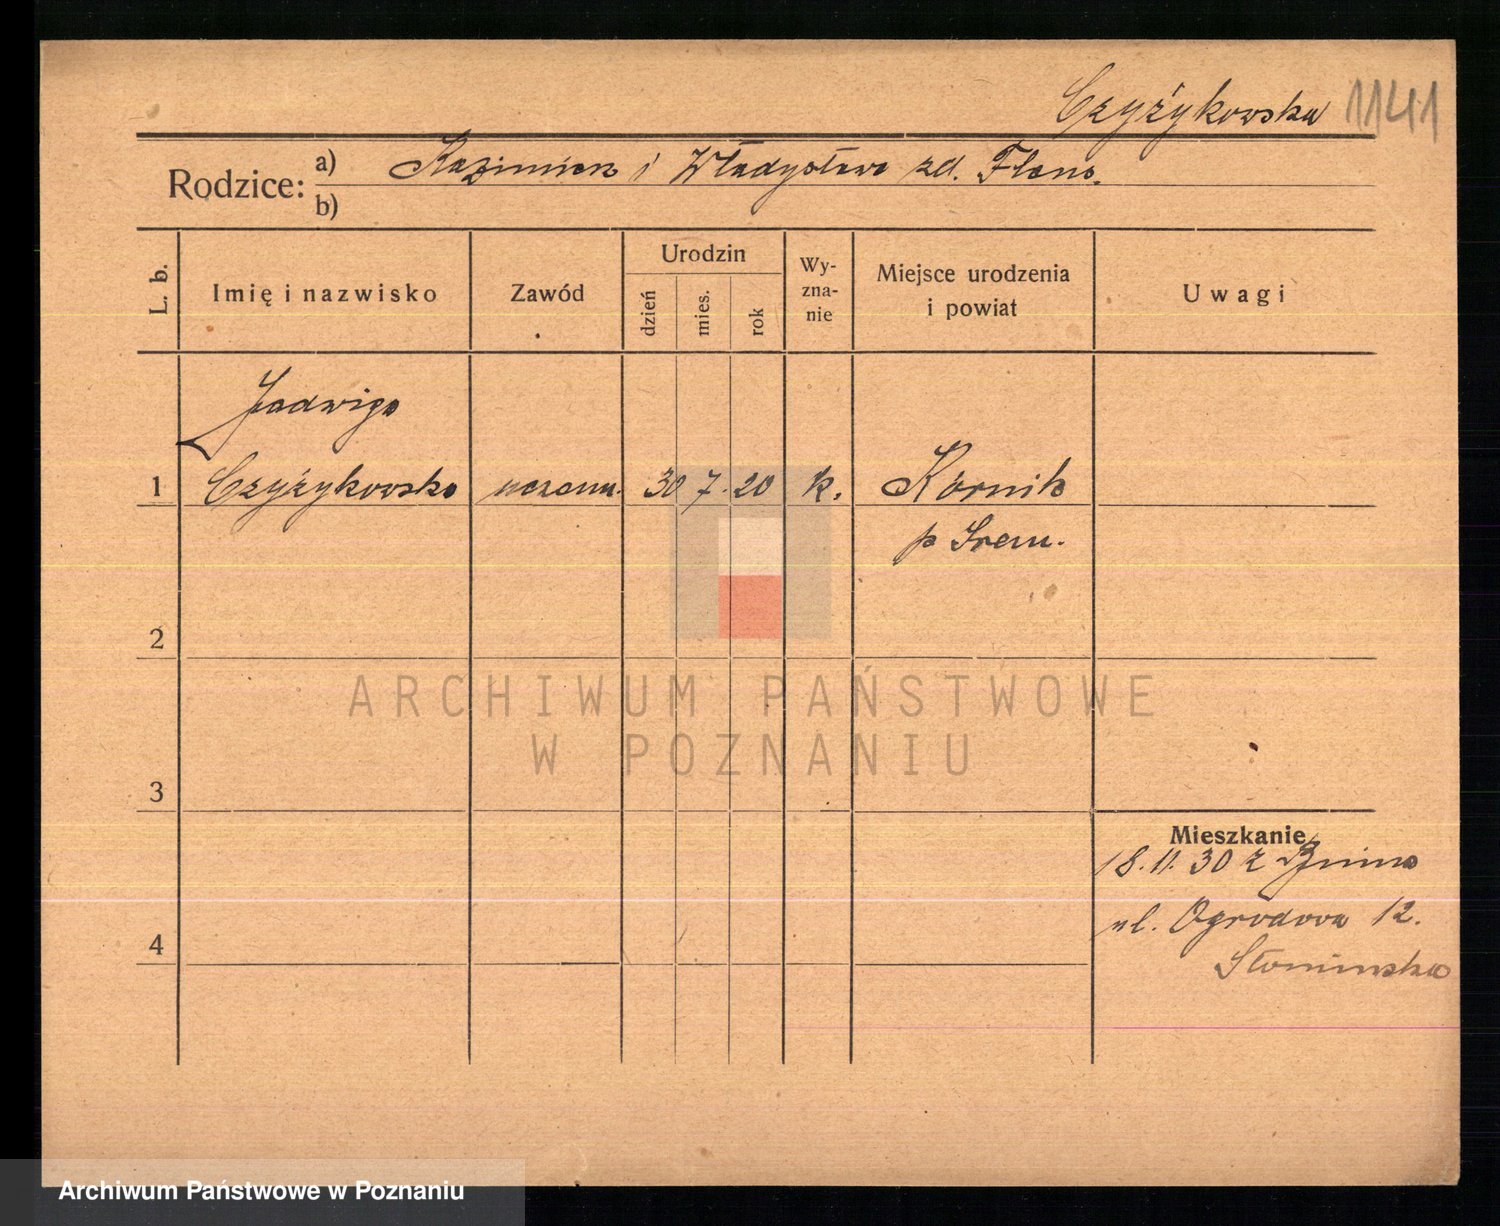 Czyżykowska 1141
Rodzice: a) Kazimierz i Władysława zd.
b)
L. b. Imię i nazwisko Zawód Urodzin dzień mies. rok Wy-zna-nie Miejsce urodzenia i powiat Uwagi
Jadwiga
1 Czyżykowska uczenn. 30 7. 20 k. Kórnik
p Śrem.
2
ARCHIWUM PAŃSTWOWE
W POZNANIU
3
Mieszkanie
18.11.30 z Bnina
ul. Ogrodowa 12.
4
Słomińska
Archiwum Państwowe w Poznaniu